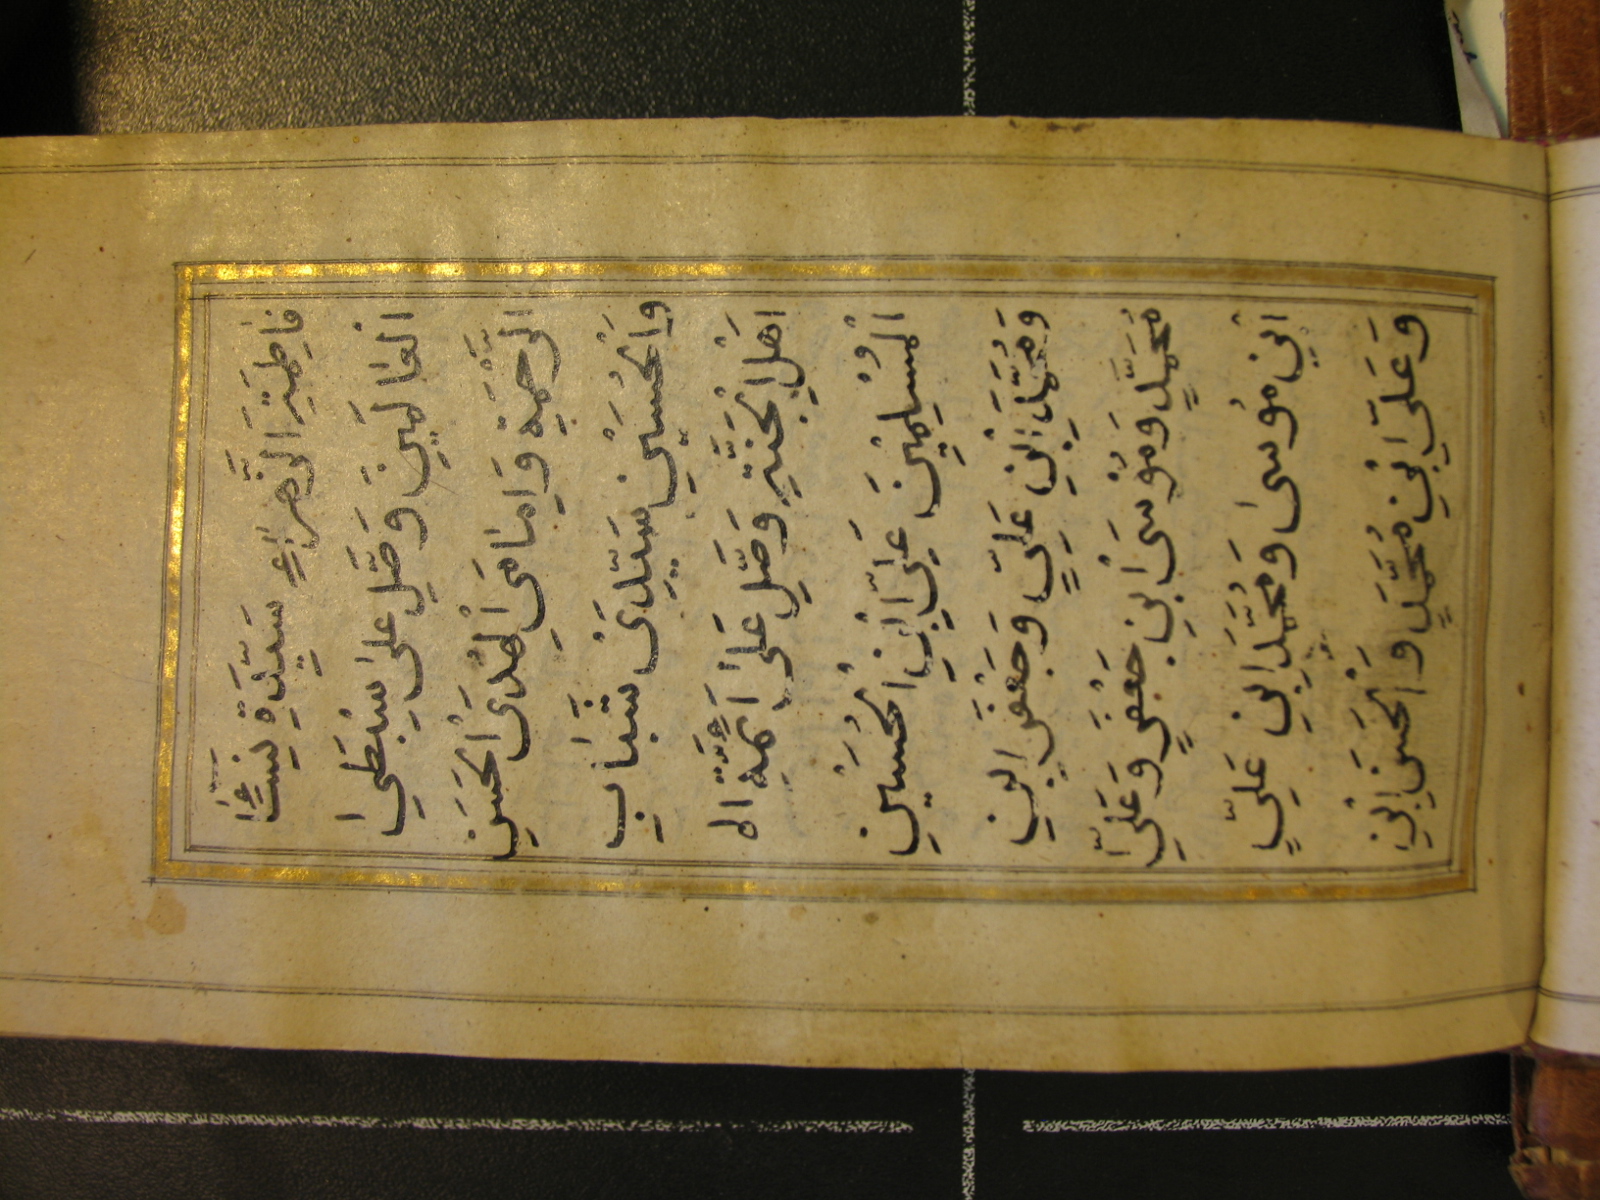 فَاطِمَةِ الزَّهْرَاءِ سَيِّدَةِ نِسَاءِ
الْعَالَمِينَ وَصَلِّ عَلَى سِبْطَيِ
الرَّحْمَةِ وَاِمَامَيِ الْهُدَى الْحَسَنِ
وَالْحُسَيْنِ سَيِّدَىْ شَبَابِ
اَهْلِ الْجَنَّةِ وَصَلِّ عَلَى اَئِمَّةِ ال
الْمُسْلِمِيْنَ عَلِىِّ ابْنِ الْحُسَيْنِ
وَمُحَمَّدِ ابْنِ عَلِيٍّ وَجَعْفَرِ ابْنِ
مُحَمَّدٍ وَمُوْسَى ابْنِ جَعْفَرٍ وَعَلِىِّ
ابْنِ مُوسٰى وَمُحَمَّدِ ابْنِ عَلِيٍّ
وَعَلَىِّ ابْنِ مُحَمَّدٍ وَالْحَسَنِ ابْنِ